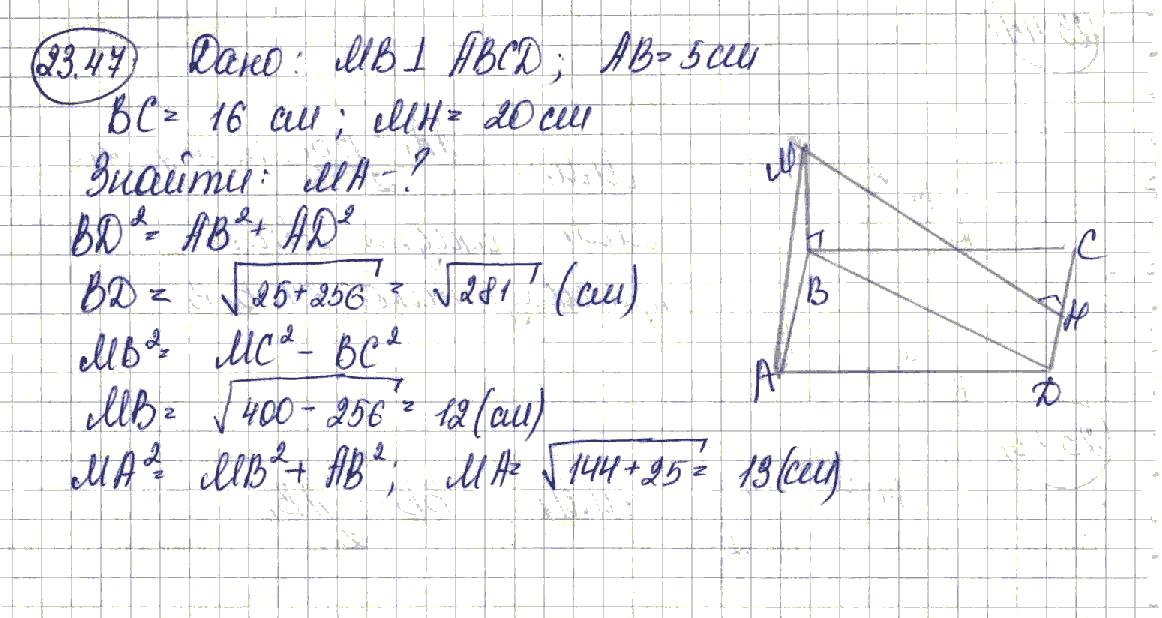 23.47 Дано: MB ⊥ ABCD; AB = 5 см
BC = 16 см; MH = 20 см
Знайти: MA - ?
BD² = AB² + AD²
BD = √25+256 = √281 (см)
MB² = MC² - BC²
MB = √400 - 256 = 12 (см)
MA² = MB² + AB²; MA = √144+25 = 13 (см)
M
C
B
H
A
D